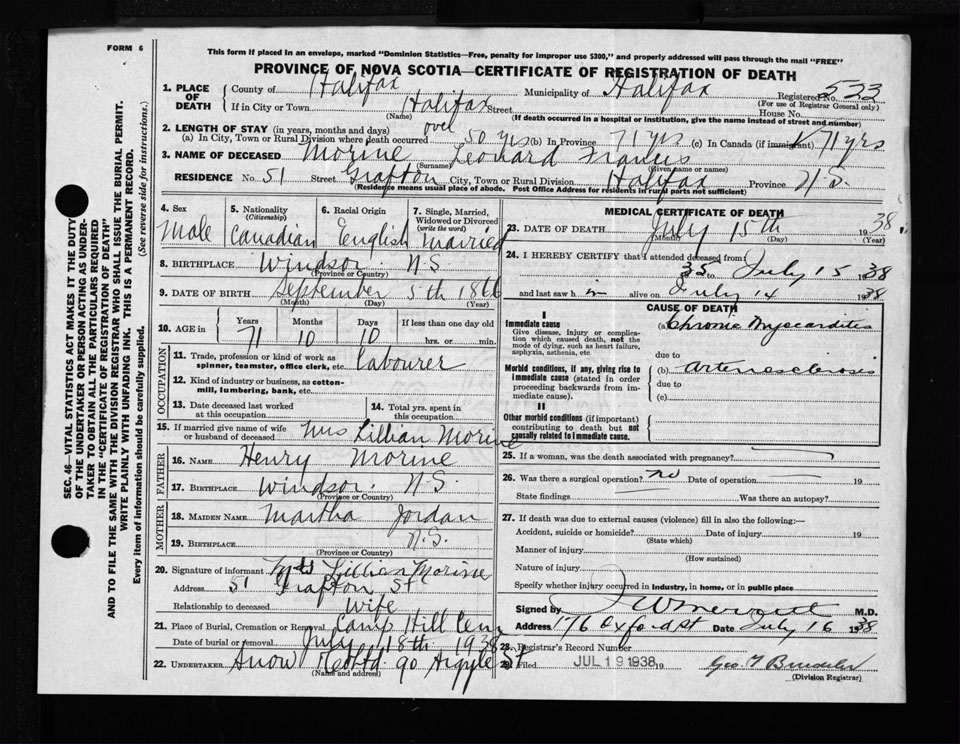 FORM 6
This form if placed in an envelope, marked "Dominion Statistics—Free, penalty for improper use $300," and properly addressed will pass through the mail "FREE"
PROVINCE OF NOVA SCOTIA—CERTIFICATE OF REGISTRATION OF DEATH
1. PLACE OF DEATH County of Halifax Municipality of Halifax Registered No. 533
(For use of Registrar General only)
If in City or Town Halifax Street House No.
(Name) (If death occurred in a hospital or institution, give the name instead of street and number)
2. LENGTH OF STAY (in years, months and days)
(a) In City, Town or Rural Division where death occurred over 50 yrs (b) In Province 71 yrs (c) In Canada (if immigrant) 71 yrs
3. NAME OF DECEASED Morine Leonard Francis
(Surname) (Given name or names)
RESIDENCE No. 51 Street Grafton City, Town or Rural Division Halifax Province N.S.
(Residence means usual place of abode. Post Office Address for residents in rural parts not sufficient)
4. Sex 5. Nationality (Citizenship) 6. Racial Origin 7. Single, Married, Widowed or Divorced (write the word)
Male Canadian English Married
8. BIRTHPLACE Windsor N.S.
(Province or Country)
9. DATE OF BIRTH September 5th 1866
(Month) (Day) (Year)
10. AGE in Years Months Days If less than one day old
71 10 10 hrs. or min.
OCCUPATION
11. Trade, profession or kind of work as spinner, teamster, office clerk, etc. Labourer
12. Kind of industry or business, as cotton-mill, lumbering, bank, etc.
13. Date deceased last worked at this occupation
14. Total yrs. spent in this occupation
15. If married give name of wife or husband of deceased Mrs Lillian Morine
FATHER
16. NAME Henry Morine
17. BIRTHPLACE Windsor N.S.
(Province or Country)
MOTHER
18. MAIDEN NAME Martha Jordan
19. BIRTHPLACE N.S.
(Province or Country)
20. Signature of informant Mrs Lillian Morine
Address 51 Grafton St
Relationship to deceased Wife
21. Place of Burial, Cremation or Removal Camp Hill Cem
Date of burial or removal July 18th 1938
22. UNDERTAKER Snow & Co Ltd 90 Argyle St
(Name and address)
MEDICAL CERTIFICATE OF DEATH
23. DATE OF DEATH July 15th 1938
(Month) (Day) (Year)
24. I HEREBY CERTIFY that I attended deceased from
33 to July 15 1938
and last saw him alive on July 14 1938
CAUSE OF DEATH
I
Immediate cause (a) Chronic Myocarditis
Give disease, injury or complication which caused death, not the mode of dying, such as heart failure, asphyxia, asthenia, etc.
due to
Morbid conditions, if any, giving rise to immediate cause (stated in order proceeding backwards from immediate cause).
(b) Arteriosclerosis
due to
(c)
II
Other morbid conditions (if important) contributing to death but not causally related to immediate cause.
25. If a woman, was the death associated with pregnancy?
26. Was there a surgical operation? no Date of operation 19
State findings Was there an autopsy?
27. If death was due to external causes (violence) fill in also the following:—
Accident, suicide or homicide? Date of injury 19
(State which)
Manner of injury
(How sustained)
Nature of injury
Specify whether injury occurred in industry, in home, or in public place
Signed by M.D.
Address 176 Oxford St Date July 16 1938
28. Registrar's Record Number
29. Filed JUL 19 1938 19 Geo. F
(Division Registrar)
SEC. 46—VITAL STATISTICS ACT MAKES IT THE DUTY
OF THE UNDERTAKER OR PERSON ACTING AS UNDER-
TAKER TO OBTAIN ALL THE PARTICULARS REQUIRED
IN THE "CERTIFICATE OF REGISTRATION OF DEATH"
AND TO FILE THE SAME WITH THE DIVISION REGISTRAR WHO SHALL ISSUE THE BURIAL PERMIT.
WRITE PLAINLY WITH UNFADING INK. THIS IS A PERMANENT RECORD.
Every item of information should be carefully supplied.
(See reverse side for instructions.)